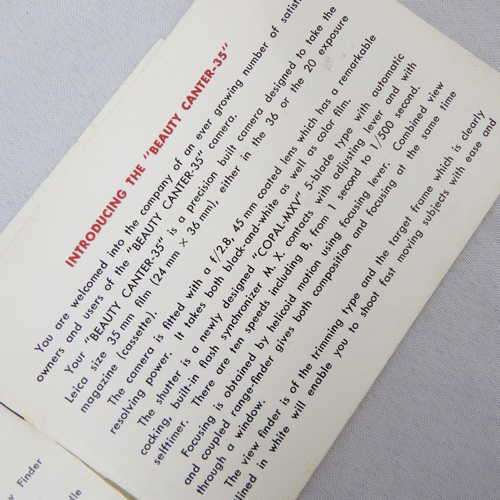 INTRODUCING THE "BEAUTY CANTER-35"
You are welcomed into the company of an ever growing number of
owners and users of the "BEAUTY CANTER-35" camera.
Your "BEAUTY CANTER-35" is a precision built camera designed to take the
Leica size 35 mm film (24 mm × 36 mm), either in the 36 or the 20 exposure
magazine (cassette).
The camera is fitted with a f/2.8, 45 mm coated lens which has a remarkable
resolving power. It takes both black-and-white as well as color film.
The shutter is a newly designed "COPAL-MXV" 5-blade type with automatic
cocking, built-in flash synchronizer M. X. contacts with adjusting lever and with
selftimer. There are ten speeds including B, from 1 second to 1/500 second.
Focusing is obtained by helicoid motion using focusing lever. Combined view
and coupled range-finder gives both composition and focusing at the same time
through a window.
The view finder is of the trimming type and the target frame which is clearly
lined in white will enable you to shoot fast moving subjects with ease and
Finder